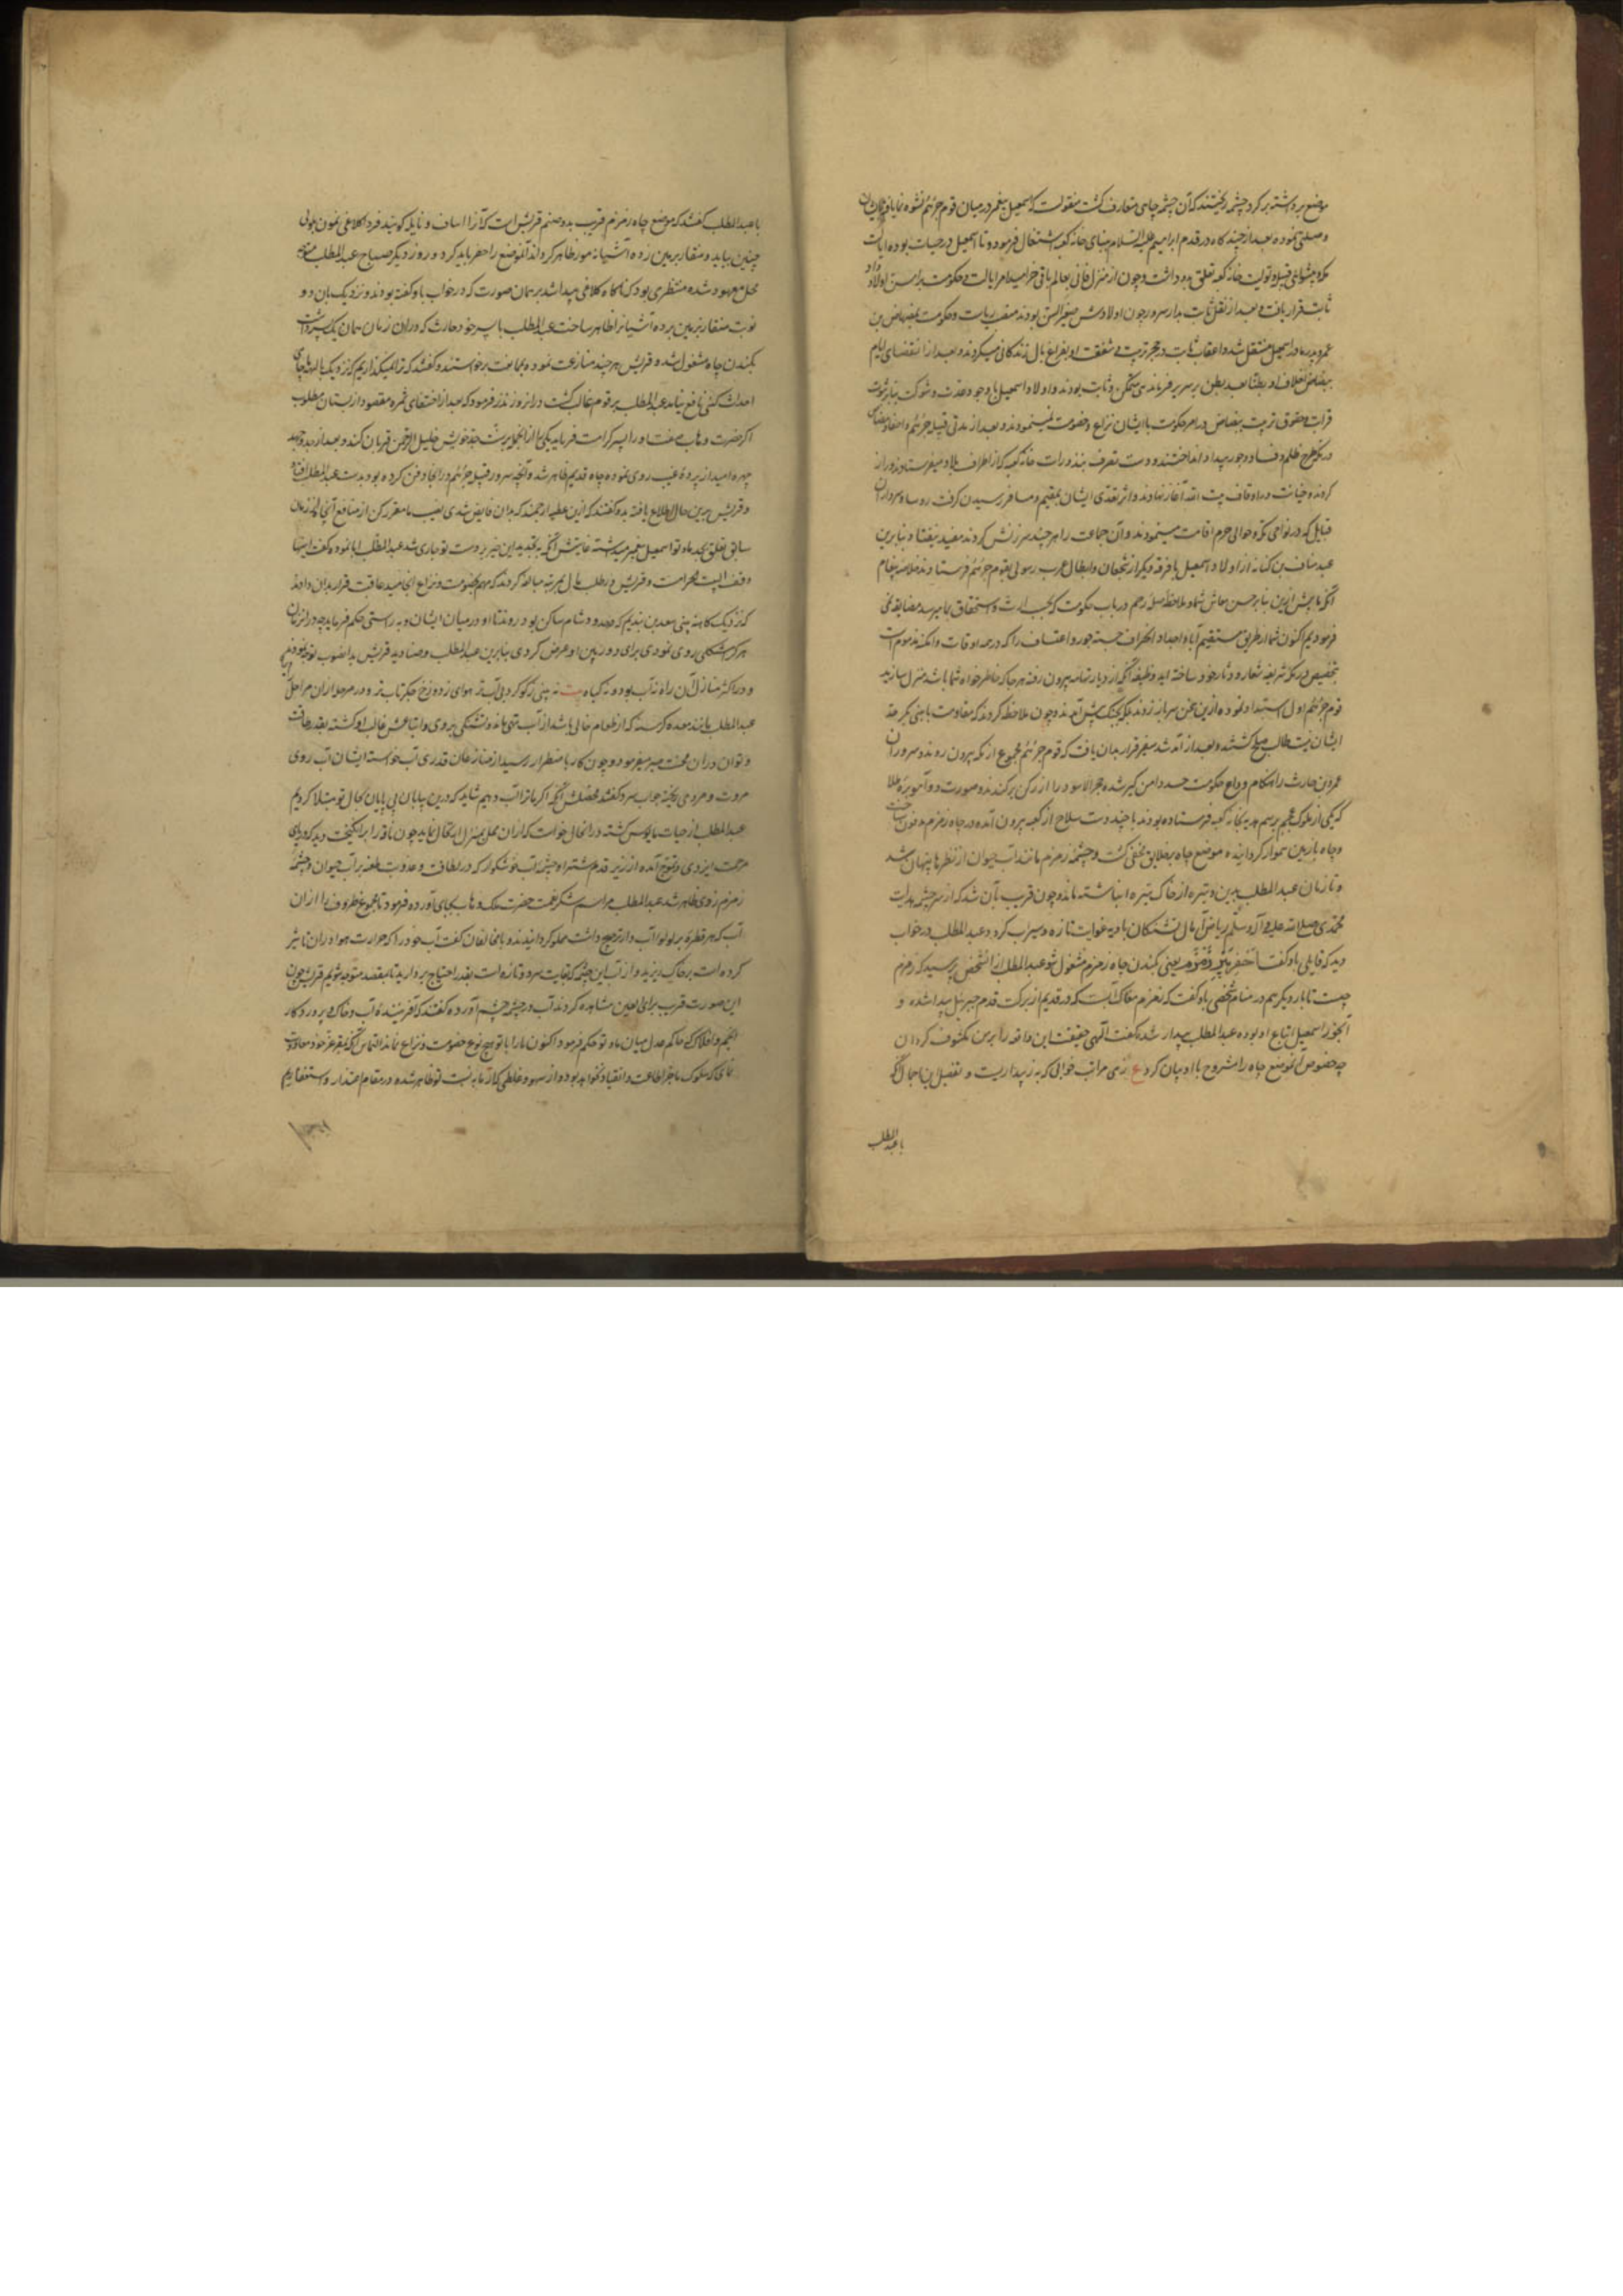 موضع برداشته بر کرد چشمه ریختند که آن چشمه چاهی متعارف گشت منقولست که اسمعیل پیغمبر در میان قوم جرهم نشو و نما یافته
وصلتی نموده بعد از چند کاه در قدم ابراهیم علیه السلام بنای خانه کعبه اشتغال فرمود و تا اسمعیل در حیات بود ایالت
مکه و پیشوائی قبیله و تولیت خانه کعبه تعلق بدو داشت و چون از منزل فانی بعالم باقی خرامید امر ایالت و حکومت بر اسن اولاد او
ثابت قرار یافت و بعد از نقل ثابت بدار سرور چون اولادش صغیر السن بودند منصب ریاست و حکومت بمضاض بن
عمرو پدر مادر اسمعیل منتقل شد و اعقاب ثابت در حجر تربیت و شفقت او بفراغ بال زندکانی میکردند و بعد از انقضای ایام
مضاض اخلاف او بطنا بعد بطن بر سریر فرماندهی متمکن و ثابت بودند و اولاد اسمعیل با وجود عدت و شوکت بنا بر ثبوت
قرابت و حقوق تربیت مضاض در امر حکومت با ایشان نزاع و خصومت نمینمودند و بعد از مدتی قبیله جرهم و احفاد مضاض
در مکه طرح ظلم و فساد و جور و بیداد انداختند و دست تصرف بنذورات خانه کعبه که از اطراف بلاد میفرستادند دراز
کرده خیانت در اوقاف بیت الله آغاز نهادند و اثر تعدی ایشان بمقیم و مسافر رسیدن گرفت روسا و سرداران
قبایل که در نواحی مکه و حوالی حرم اقامت مینمودند و آن جماعت را هر چند سرزنش کردند مفید نیفتاد بنابرین
عبد مناف بن کنانه از اولاد اسمعیل با فرقه دیگر از شجعان و ابطال عرب رسولی بقوم جرهم فرستادند خلاصه پیغام
آنکه ما پیش ازین بنا بر حسن معاش شما و ملاحظه صله رحم در باب حکومت که بحسب ارث و استحقاق بما میرسد مضایقه نمی
فرمودیم اکنون شما از طریق مستقیم آبا و اجداد انحراف جسته جور و اعتساف را که در همه اوقات و امکنه مذموم است
بتخصیص در مکه شریفه شعار و دثار خود ساخته اید وظیفه آنکه از دیار تهامه بیرون رفته هر جا که خاطر خواه شما باشد منزل سازید
قوم جرهم اول استبداد نموده ازین سخن سر باز زدند بلکه بجنک پیش آمدند و چون ملاحظه کردند که مقاومت با بنی بکر حد
ایشان نیست طالب صلح گشتند و بعد از آمد شد سفیر قرار بدان یافت که قوم جرهم مجموع از مکه بیرون روند و سرور آن
عمرو بن حارث را هنکام وداع حکومت حسد دامن گیر شده حجر الاسود را از رکن بر کندند و صورت دو آهو بره طلا
که یکی از ملوک عجم برسم هدیه بخانه کعبه فرستاده بودند با چند دست سلاح از کعبه بیرون آمده در چاه زمزم مدفون ساخت
و چاه با زمین هموار کردانیده موضع چاه بر خلایق مخفی گشت و چشمه زمزم مانند آب حیوان از نظرها پنهان شد
و تا زمان عبد المطلب بدین وتیره از خاک تیره انباشته ماند و چون قریب بآن شد که از سرچشمه هدایت
محمدی صلی الله علیه و آله و سلم ریاض آمال تشنکان بادیه غوایت تازه و سیراب کردد عبد المطلب در خواب
دید که قایلی باو گفت احفر بئر زمزم یعنی بکندن چاه زمزم مشغول شو عبد المطلب از آن شخص پرسید که زمزم
چیست تا بار دیکر هم در منام شخصی باو گفت که زمزم مغاک آبست که در قدیم از برکت قدم جبرئیل پیدا شده و
آبخور اسمعیل و اتباع او بوده عبد المطلب بیدار شد و گفت الهی حقیقت این واقعه را بر من مکشوف کردان
چه خصوص آن موضع چاه را مشروح با او بیان کرد ع زهی مراتب خوابی که به ز بیداریست و تفصیل این اجمال آنکه
با عبد المطلب
با عبد المطلب گفتند که موضع چاه زمزم قریب بدو صنم قریش است که آنرا اساف و نایله کویند فردا کلاغی
چنین بیاید و منقار بر زمین زده آشیانه مور ظاهر کرداند آن موضع را حفر باید کرد و روز دیکر صباح عبد المطلب متوجه
محل معهود شده منتظر می بود که ناکاه کلاغی پیدا شد بر همان صورت که در خواب باو گفته بودند و نزدیک بان دو
نوبت منقار بر زمین برده آشیانه را ظاهر ساخت عبد المطلب با پسر خود حارث که در آن زمان همان یک پسر داشت
بکندن چاه مشغول شد و قریش هر چند منازعت نموده بممانعت برخواستند و گفتند که ترا نمیکذاریم که نزدیک بالهه ما چاهی
احداث کنی نافع نیامد عبد المطلب بر قوم غالب گشت در آن روز نذر فرمود که بعد از اختفای ثمره مقصود از بستان مطلوب
اگر حضرت وهاب بی منت او را ده پسر کرامت فرماید یکی را از آنها بر سنت جد خویش خلیل الرحمن قربان کند و بعد از جد و جهد
چهره امید از پرده غیب روی نموده چاه قدیم ظاهر شد و آنچه سرور قبیله جرهم در آنجا دفن کرده بود بدست عبد المطلب افتاد
و قریش برین حال اطلاع یافته بدو گفتند که ازین عطیه ارجمند که بدان فایض شدی نصیب ما مقرر کن از منافع آنکه در زمان
سابق تعلق بجد ما و تو اسمعیل پیغمبر میداشته غایتش آنکه تجدید این خیر بر دست تو جاری شد عبد المطلب ابا نموده گفت اینها
وقف البیت الحرام است و قریش در طلب مال بمرتبه مبالغه کردند که مهم بخصومت و نزاع انجامید عاقبت قرار بدان دادند
که نزدیک کاهنه بنی سعد بن هذیم که در حدود شام ساکن بود روند تا او در میان ایشان و به راستی حکم فرماید چه در آن زمان
هر کرا مشکلی روی نمودی برای دوربین او عرض کردی بنابرین عبد المطلب و صنادید قریش بدانصوب توجه نمودند
و در اکثر منازل آن راه نه آب بود و نه گیاه بیت نه بینی ز گوگرد بی آب تر هوای ز دوزخ جگر تاب تر و در مرحله از آن مراحل
عبد المطلب مانند معده گرسنه که از طعام خالی باشد از آب تهی ماند و تشنکی بر وی و اتباعش غالب گشته بقدر طاقت
و توان در آن محنت صبر میفرمود و چون کار باضطرار رسید از منازعان قدری آب خواست ایشان آب روی
مروت و مردمی ریخته جواب سرد گفتند محصلش آنکه اگر ما ترا آب دهیم شاید که درین بیابان بی پایان بحال تو مبتلا کردیم
عبد المطلب از حیات مایوس گشته در آن حال خواست که از آن محل بمنزل ارتحال نماید چون ناقه را برانکیخت دید که دریای
مرحمت ایزدی در تموج آمده از زیر قدم شتر او چشمه آب خوشکوار که در لطافت و عذوبت طعنه بر آب حیوان و چشمه
زمزم زدی ظاهر شد عبد المطلب مراسم شکر نعمت حضرت ملک وهاب بجای آورده فرمود تا مجموع ظروف را از آن
آب که هر قطره بر لولو آب دار ترجیح داشت مملو کردانیدند و با مخالفان گفت آب خود را که حرارت هوا در آن تاثیر
کرده است بر خاک ریزید و از آب این چشمه که بغایت سرد و تازه است بقدر احتیاج بردارید تا بمقصد متوجه شویم قریش چون
این صورت غریب برای العین مشاهده کردند آب در چشم آورده گفتند که آفریننده آب و خاک و پروردکار
انجم و افلاک که حاکم عدل میان ما و تو حکم فرمود اکنون ما را با تو هیچ نوع خصومت و نزاع نماند التماس آنکه بمقر عز خود معاودت
نمائی که سلوک ما جز اطاعت و انقیاد نخواهد بود و از سهو و غلطی که از ما به نسبت تو ظاهر شده در مقام اعتذار و استغفاریم